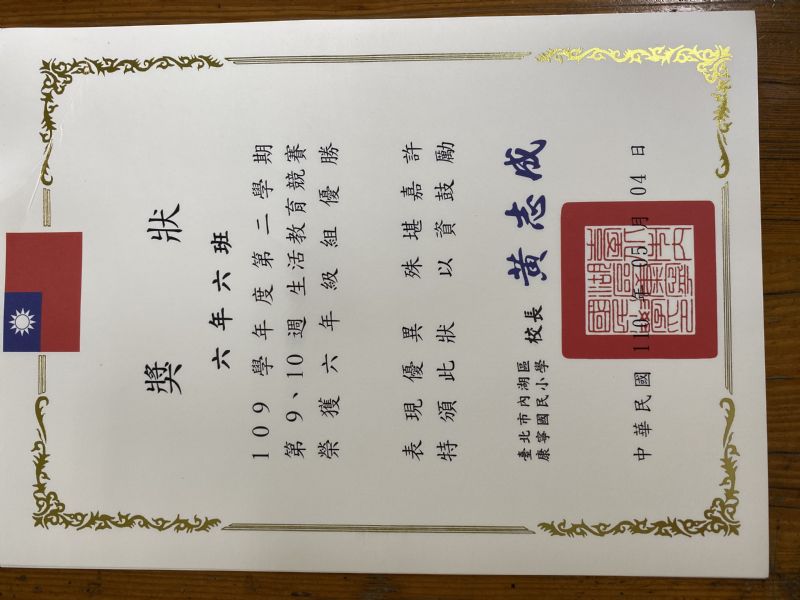 獎狀
六年六班
109學年度第二學期
第9、10週 生活教育競賽
榮獲六年級組優勝
表現優異 殊堪嘉許
特頒此狀 以資鼓勵
臺北市內湖區
康寧國民小學
校長 黃志成
中華民國 110 年 05 月 04 日